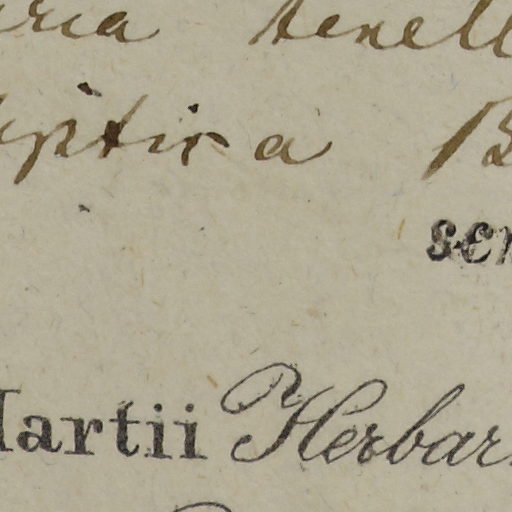 ria tenell
iptica B
sen
Martii Herbar